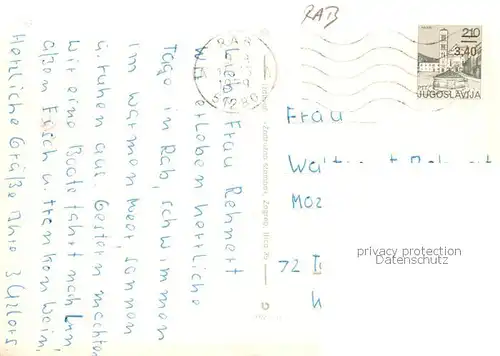 RAB
2.10
3,40
JUGOSLAVIJA
Liebe Frau Rehnert
Wir erleben herrliche
Tage in Rab, schwimmen
im warmen Meer, sonnen
u. ruhen aus. Gestern machten
wir eine Bootsfahrt nach Lun
aßen Fisch u. tranken Wein.
Herzliche Grüße Ihre 3
Frau
72
privacy protection
Datenschutz